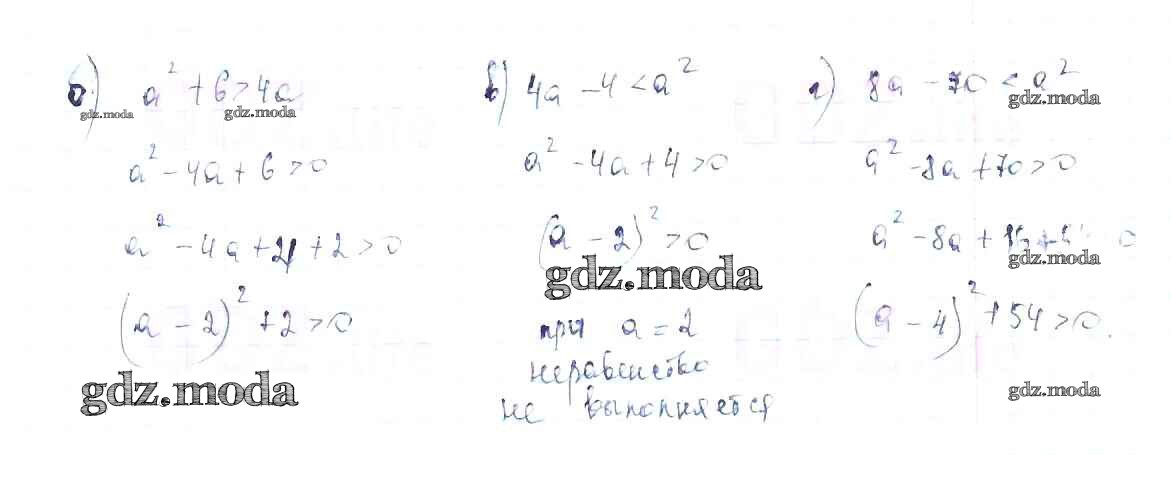 б) a² + 6 > 4a
gdz.moda
gdz.moda
a² - 4a + 6 > 0
a² - 4a + 4 + 2 > 0
(a - 2)² + 2 > 0
gdz.moda
в) 4a - 4 < a²
a² - 4a + 4 > 0
(a - 2)² > 0
gdz.moda
при a = 2
неравенство
не выполняется
г) 8a - 70 < a²
gdz.moda
a² - 8a + 70 > 0
a² - 8a + 16 +
gdz.moda
(a - 4)² + 54 > 0.
gdz.moda